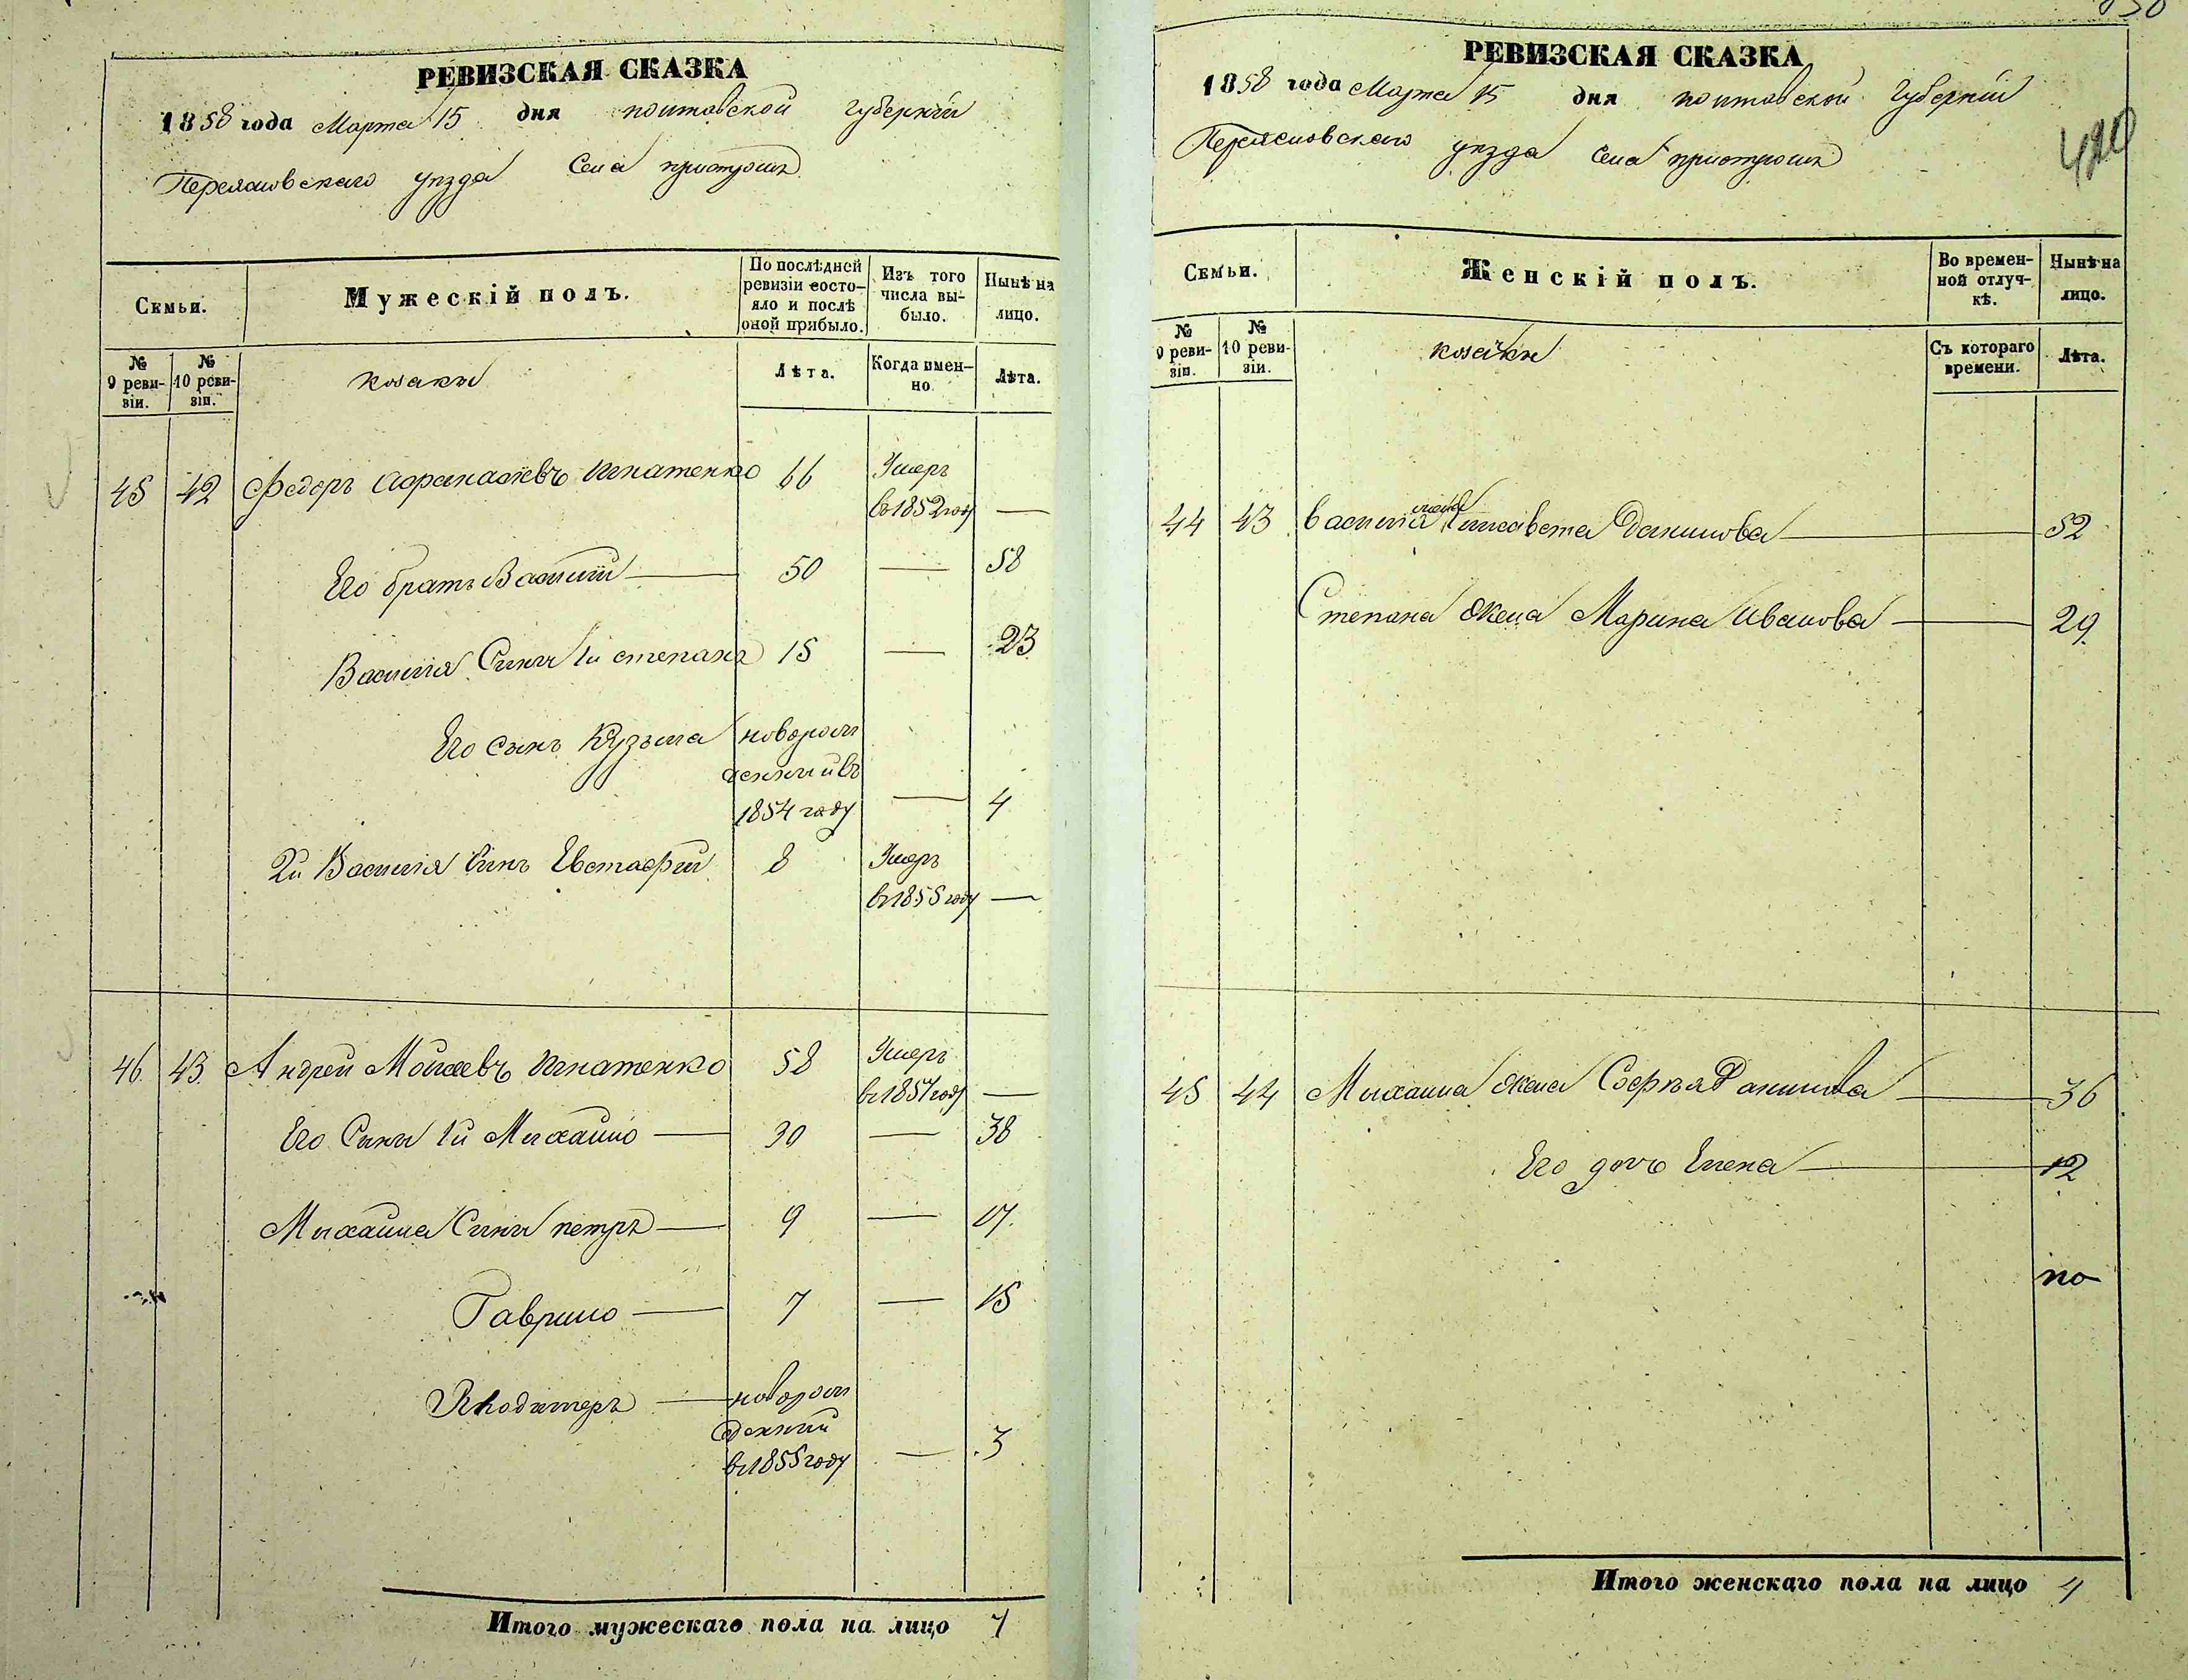 РЕВИЗСКАЯ СКАЗКА
1858 года Марта 15 дня полтавской Губернїи
Переяславского уезда Села пристром
Семьи.
Мужескій полъ.
По послѣдней ревизіи состо-
яло и послѣ
оной прибыло.
Изъ того
числа вы-
было.
Нынѣ на
лицо.
№
9 реви-
зіи.
№
10 реви-
зіи.
козаки
Лѣта.
Когда имен-
но.
Лѣта.
45 42 Федоръ Афанасіевъ Игнатенко 66 Умеръ
въ 1852 году —
Его братъ Василій — 50 — 58
Василія Сыны 1й степанъ 15 — 23
Его сынъ Кузьма новорож
денный въ
1854 году — 4
2й Василія Сынъ Евстафій 8 Умеръ
въ 1855 году —
46 43 Андрей Моисеевъ Игнатенко 58 Умеръ
въ 1857 году —
Его Сыны 1й Михайло — 30 — 38
Михайла Сыны петръ — 9 — 17
Гаврило — 7 — 15
— новорож
денный
въ 1855 году — 3
Итого мужескаго пола на лицо 7
РЕВИЗСКАЯ СКАЗКА
1858 года Марта 15 дня полтавской Губерніи
Переясловского уезда Села
Семьи.
Женскій полъ.
Во времен-
ной отлуч-
кѣ.
Нынѣ на
лицо.
№
9 реви-
зіи.
№
10 реви-
зіи.
козачки
Съ котораго
времени.
Лѣта.
44 43 Василія жена Елисавета Данилова — 52
Степана жена Марина Иванова — 29
45 44 Михаила жена Софья Данилова — 36
Его дочь Елена — 12
по
Итого женскаго пола на лицо 4